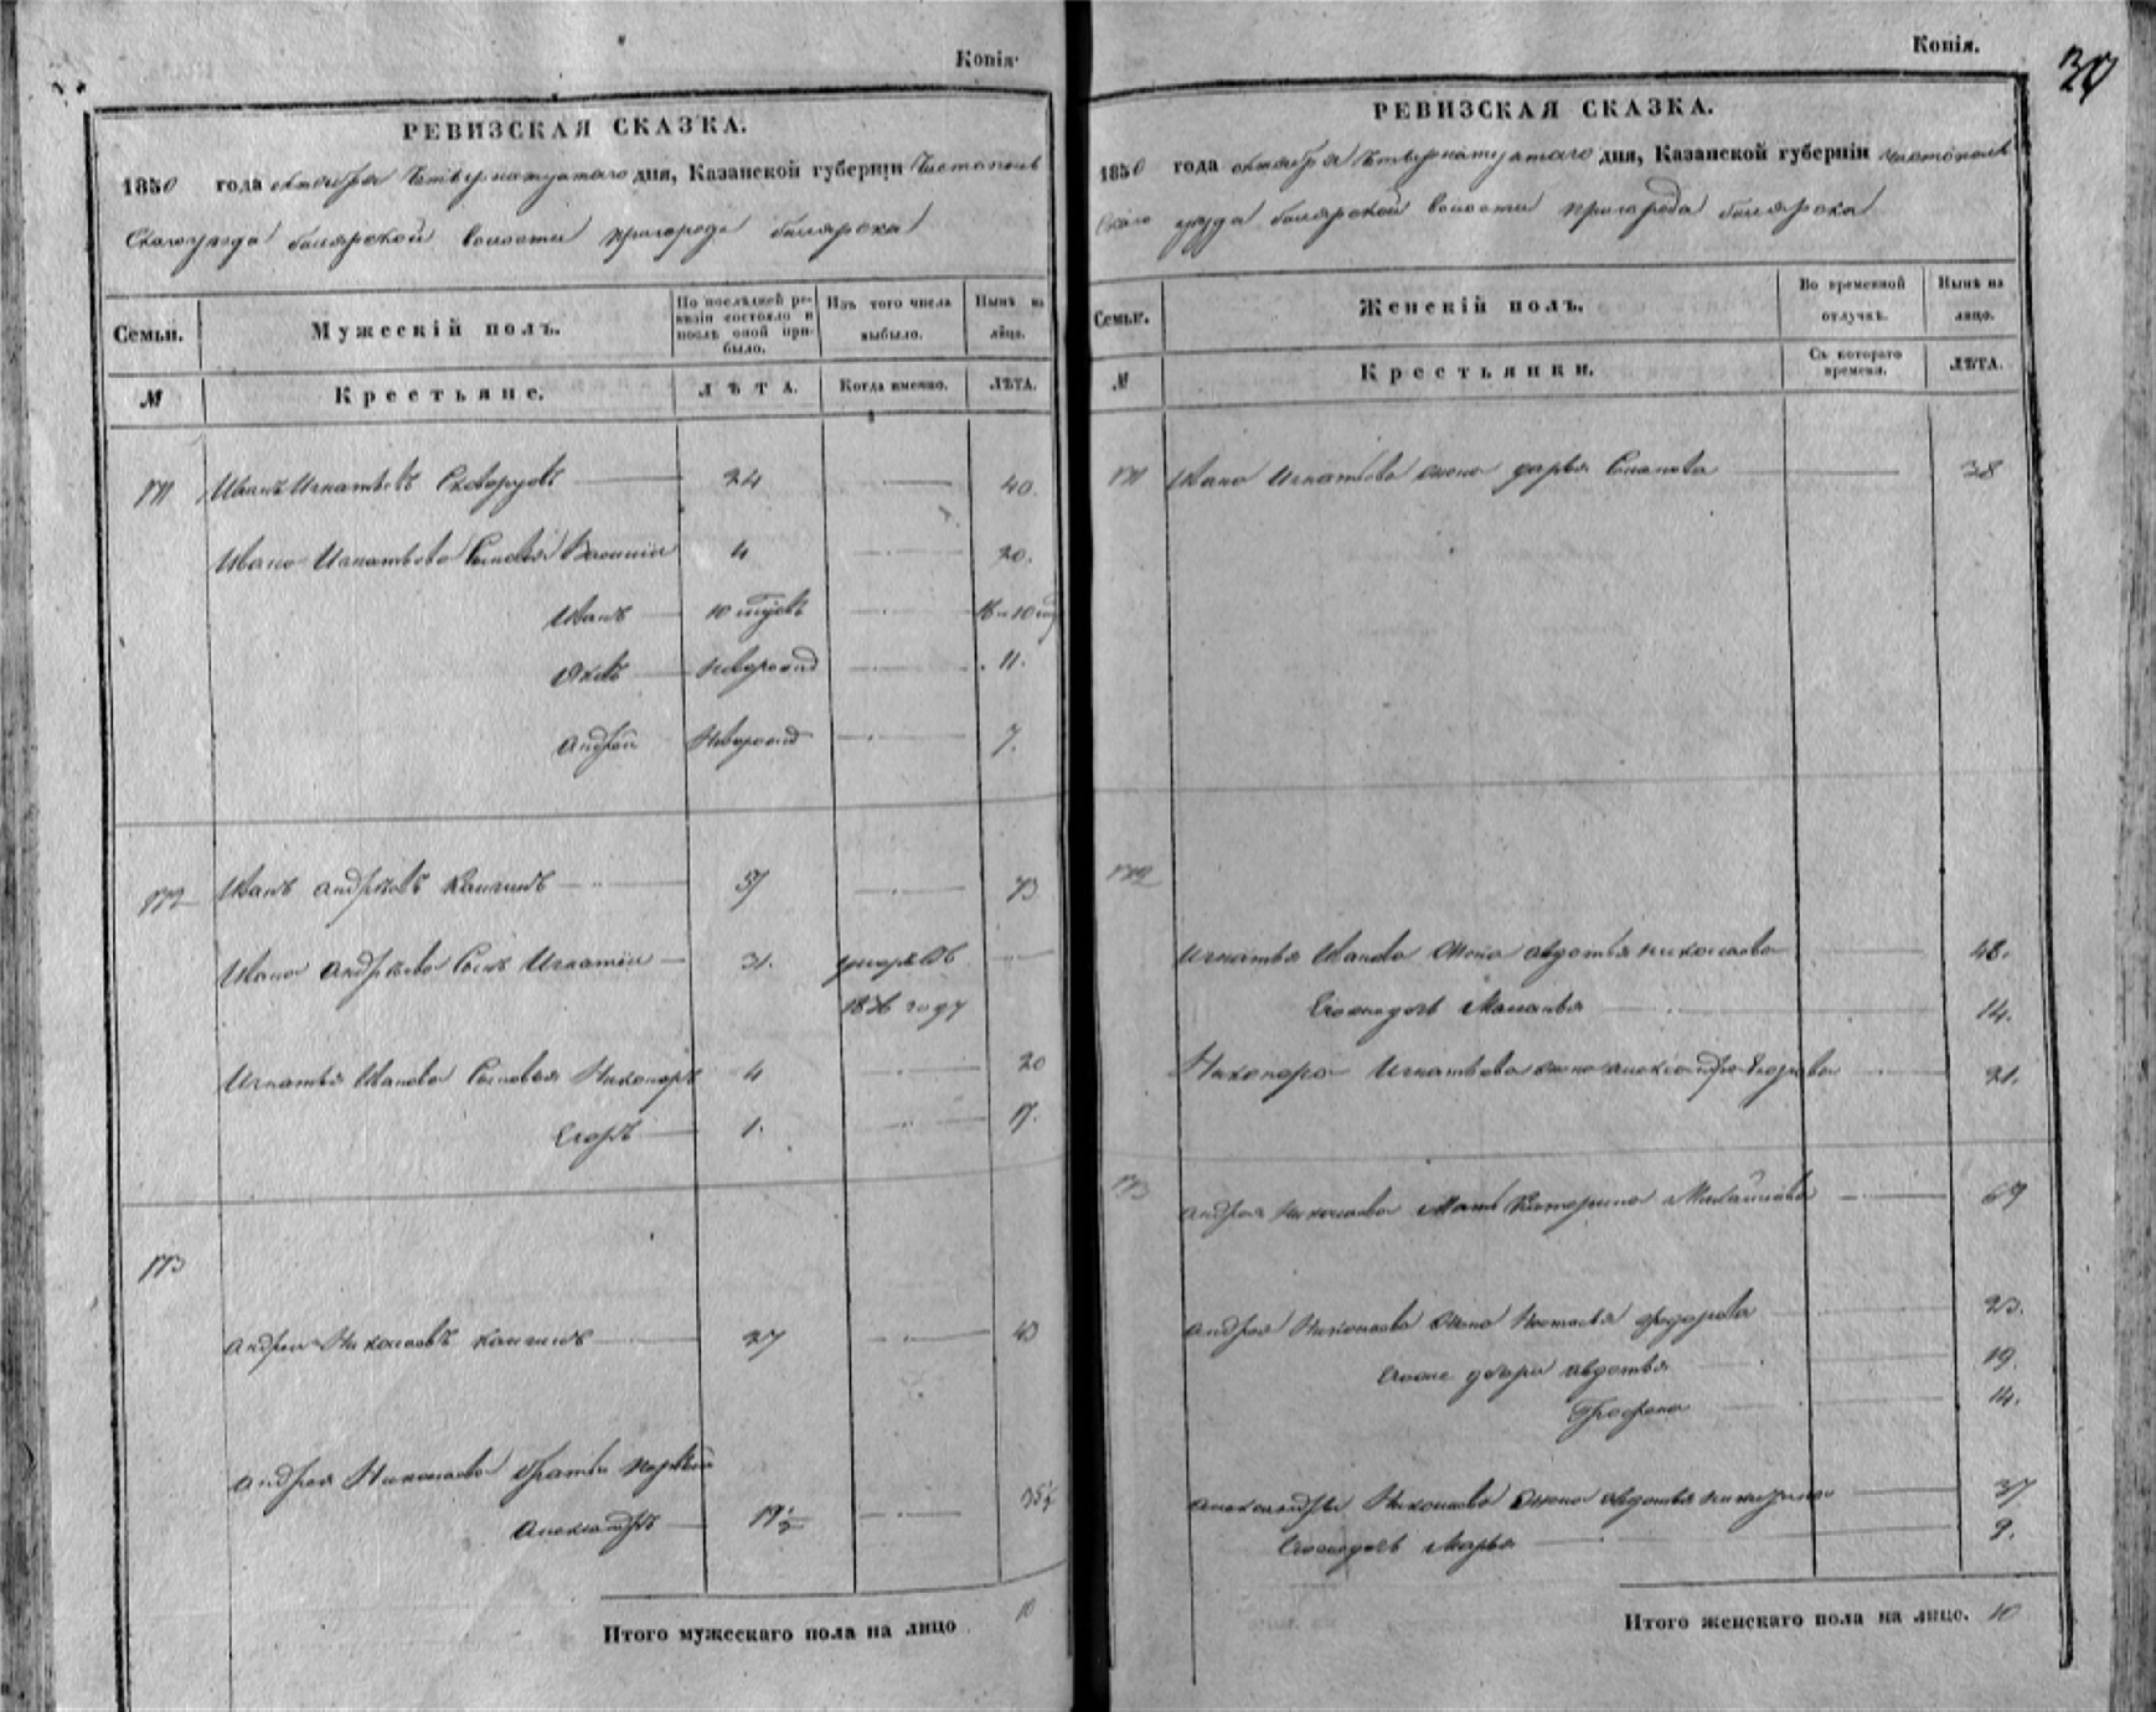 Копія.
РЕВИЗСКАЯ СКАЗКА.
1850 года октября Четвернатцатаго дня, Казанской губерніи Чистополь
Скаго уезда билярской волости пригорода билярска
Семьи. Мужескій полъ. По послѣдней ревизіи состояло и послѣ оной прибыло. Изъ того числа выбыло. Нынѣ на лицо.
№ Крестьяне. ЛѢТА. Когда именно. ЛѢТА.
171 Иванъ Игнатьевъ 24 40.
Ивана Игнатьева Сыновья Василий 4 20.
Иванъ 10 16 и 10
Яковъ новорожд 11.
Андрей новорожд 7.
172 Иванъ Андреевъ 57 73
Ивана Андреева Сынъ Игнатий 31. умеръ въ
1836 году
Игнатья Иванова Сыновья Никаноръ 4 20
Егоръ 1. 17.
173
Андрей Николаевъ 27 43
Андрея Николаева братья первый
Александръ 19 1/2 35 1/2
Итого мужескаго пола на лицо 10
Копія.
30
РЕВИЗСКАЯ СКАЗКА.
1850 года октября Четвернатцатаго дня, Казанской губерніи Чистополь
Скаго уезда билярской волости пригорода билярска
Семьи. Женскій полъ. Во временной отлучкѣ. Нынѣ на лицо.
№ Крестьянки. Съ котораго времени. ЛѢТА.
171 Ивана Игнатьева жена дарья 38
172
Игнатья Иванова жена авдотья николаева 48.
Егоже дочь Маланья 14.
Никанора Игнатьева жена александра Егорова 21.
173 Андрея Николаева Мать Катерина Михайлова 69
Андрея Николаева жена Настасья федорова 23.
Егоже дочери авдотья 19.
14.
Александры Николаева жена авдотья 37
Егоже дочь Марья 9.
Итого женскаго пола на лицо. 10